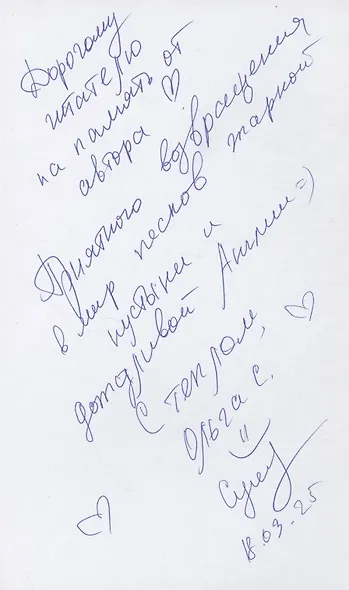 Дорогому
читателю
на память от
автора ♡
Приятного возвращения
в мир песков жаркой
пустыни и
дождливой Англии =)
С теплом,
Ольга С.
18.03.25